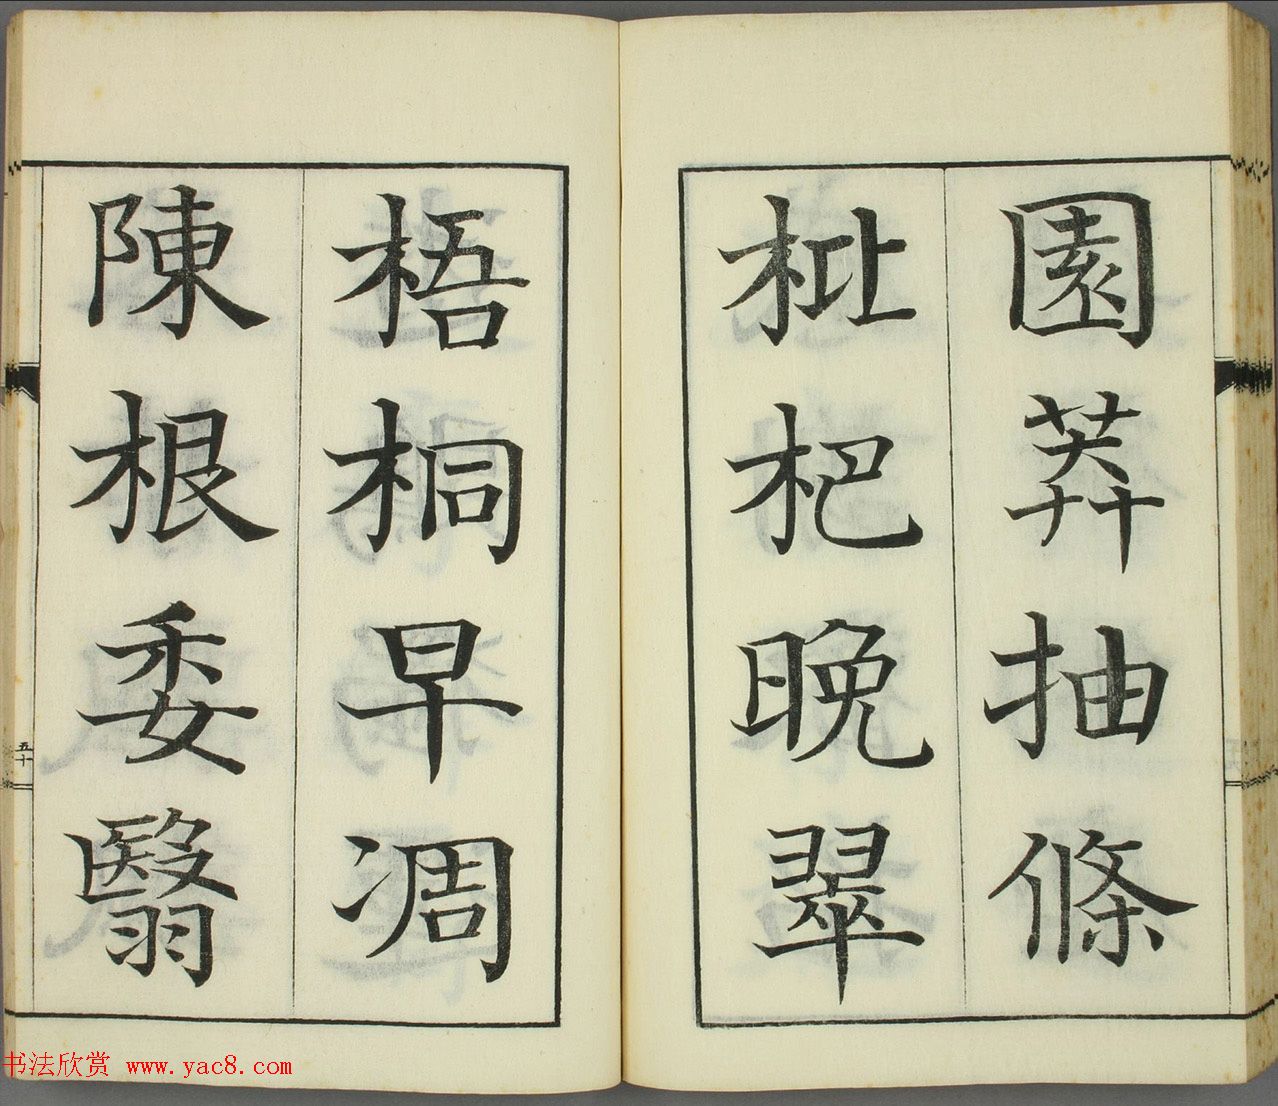 園莽抽條
枇杷晚翠
梧桐早凋
陳根委翳
五十
书法欣赏 www.yac8.com